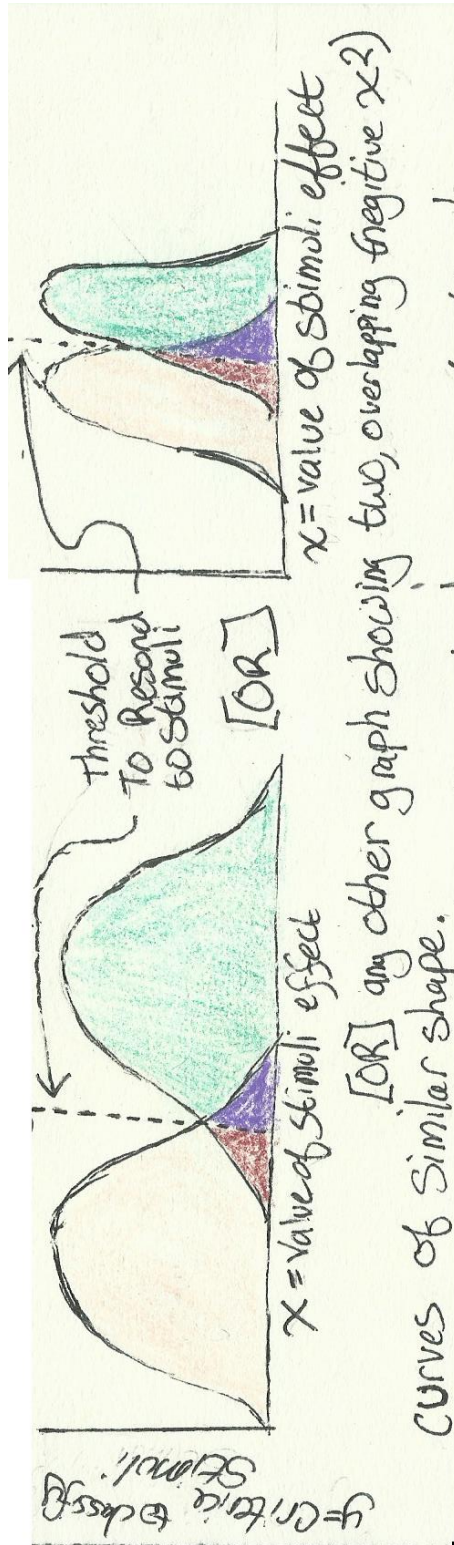 y=criteria to classify
Stimuli
Threshold
To Resond
to Stimuli
x=value of stimuli effect
[OR]
x=value of stimuli effect
[OR] any other graph showing two, overlapping (negitive x2)
curves of similar shape.